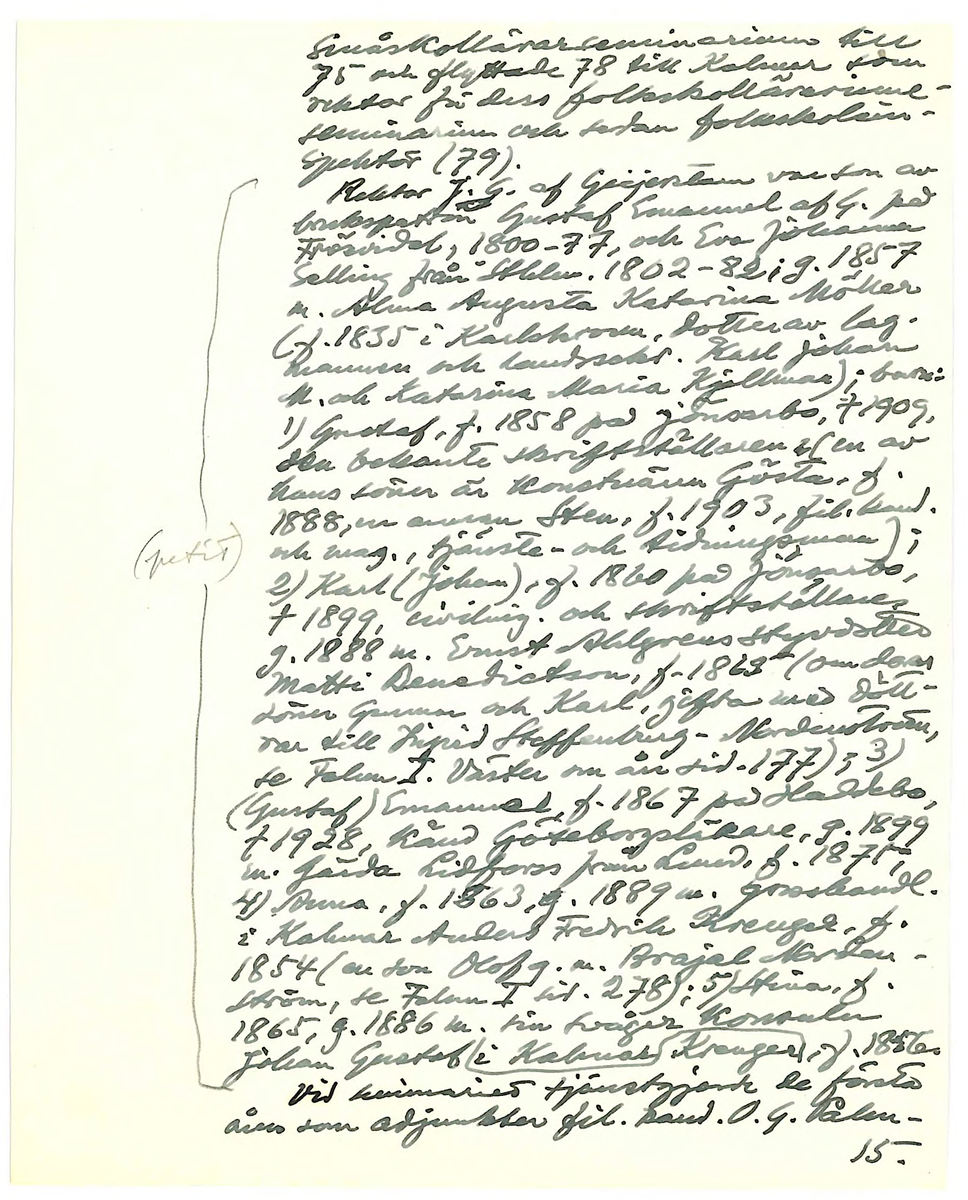 småskollärarseminarium till
75 och flyttade 78 till Kalmar som
rektor för dess folkskollärarinne-
seminarium och sedan folkskolein-
spektör (79).
Rektor J. G. af Geijerstam var son av
brukspatron Gustaf Emanuel af G. på
Frösvidal, 1800-77, och Eva Johanna
Selling från Sthlm. 1802-82; g. 1857
m. Alma Augusta Katarina Möller
(f. 1835 i Karlskrona, dotter av lag-
mannen och landssekr. Karl Johan
M. och Katarina Maria Kjellman); barn:
1) Gustaf, f. 1858 på Jönsarbo, † 1909,
den bekante skriftställaren (en av
hans söner är konstnären Gösta, f.
1888, en annan Sten, f. 1903, fil. kand.
och mag., tjänste- och tidningsman);
(petit)
2) Karl (Johan), f. 1860 på Jönsarbo,
† 1899, civiling. och skriftställare,
g. 1888 m. Ernst Ahlgrens styvdotter
Matti Benedictson, f. (om deras
söner Gunnar och Karl, gifta med dött-
rar till Ingrid Steffenburg-Nordenström,
se Falun I. Väster om ån sid. 177); 3)
(Gustaf) Emanuel, f. 1867 på
† 1928, känd Göteborgsläkare, g. 1899
m. Gärda Lidforss från Lund, f. 1875;
4) Anna, f. 1863, g. 1889 m. grosshandl.
i Kalmar Anders Fredrik Kreuger, f.
1854 (en son Olof g. m. Norden-
ström, se Falun I sid. 278); 5) Stina, f.
1865, g. 1886 m. sin svåger Konsuln
Johan Gustaf i Kalmar Kreuger, f. 1856.
Vid seminariet tjänstgjorde de första
åren som adjunkter fil. kand. O. G. Palm-
15.